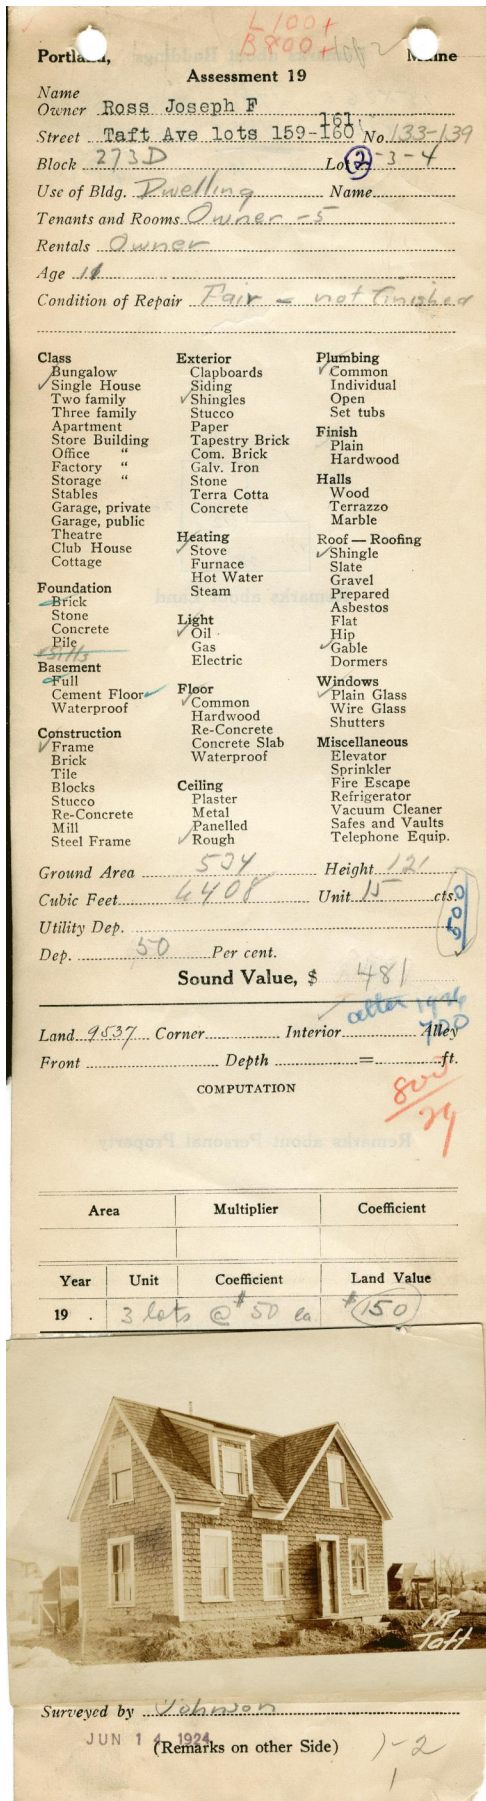 L 100+
B 800+
Portland, Maine
Assessment 19
Name
Owner Ross Joseph F
161
Street Taft Ave lots 159-160 No 133-139
Block 273D Lot 2-3-4
Use of Bldg. Dwelling Name
Tenants and Rooms Owner - 5
Rentals Owner
Age 11
Condition of Repair Fair - not finished
Class
Bungalow
Single House
Two family
Three family
Apartment
Store Building
Office "
Factory "
Storage "
Stables
Garage, private
Garage, public
Theatre
Club House
Cottage
Foundation
Brick
Stone
Concrete
Pile
Sills
Basement
Full
Cement Floor
Waterproof
Construction
Frame
Brick
Tile
Blocks
Stucco
Re-Concrete
Mill
Steel Frame
Exterior
Clapboards
Siding
Shingles
Stucco
Paper
Tapestry Brick
Com. Brick
Galv. Iron
Stone
Terra Cotta
Concrete
Heating
Stove
Furnace
Hot Water
Steam
Light
Oil
Gas
Electric
Floor
Common
Hardwood
Re-Concrete
Concrete Slab
Waterproof
Ceiling
Plaster
Metal
Panelled
Rough
Plumbing
Common
Individual
Open
Set tubs
Finish
Plain
Hardwood
Halls
Wood
Terrazzo
Marble
Roof — Roofing
Shingle
Slate
Gravel
Prepared
Asbestos
Flat
Hip
Gable
Dormers
Windows
Plain Glass
Wire Glass
Shutters
Miscellaneous
Elevator
Sprinkler
Fire Escape
Refrigerator
Vacuum Cleaner
Safes and Vaults
Telephone Equip.
Ground Area 534 Height 12'
Cubic Feet 6408 Unit 15 cts.
500
Utility Dep.
Dep. 50 Per cent.
Sound Value, $ 481
after 1926
700
Land 9537 Corner Interior Alley
Front Depth = ft.
COMPUTATION
800
24
Area Multiplier Coefficient
Year Unit Coefficient Land Value
19 . 3 lots @ $50 ea $150
Taft
Surveyed by Johnson
JUN 14 1924
(Remarks on other Side)
1-2
1